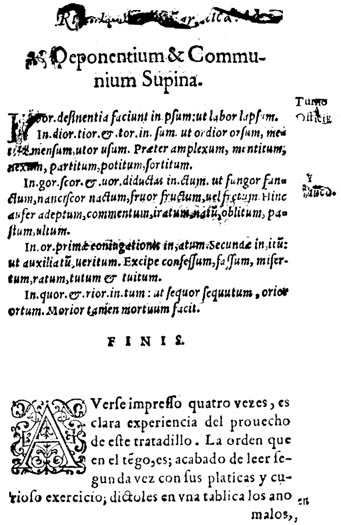 Deponentium & Commu-
nium Supina.
bor. desinentia faciunt in psum: ut labor lapsum.
In.dior.tior.&.tor.in. sum. ut ordior orsum, me-
mensum.utor usum. Præter amplexum, mentitum,
nexum, partitum, potitum, sortitum.
In.gor.scor.&.uor.diductas in.ctum. ut fungor fun-
ctum, nanciscor nactum, fruor fructum, Hinc
aufer adeptum, commentum, iratum, natũ, oblitum, pa-
stum, ultum.
In.or.primæ coniugationis in, atum. Secundæ in, itũ:
ut auxiliatũ, ueritum. Excipe confessum, fassum, miser-
tum, ratum, tutum & tuitum.
In.quor.&.rior.in.tum: ut sequor sequutum, orior
ortum. Morior tamen mortuum facit.
FINIS.
AVerse impresso quatro vezes, es
clara experiencia del prouecho
de este tratadillo. La orden que
en el tẽgo, es; acabado de leer se-
gunda vez con sus platicas y cu-
rioso exercicio; dictoles en vna tablica los ano
malos,